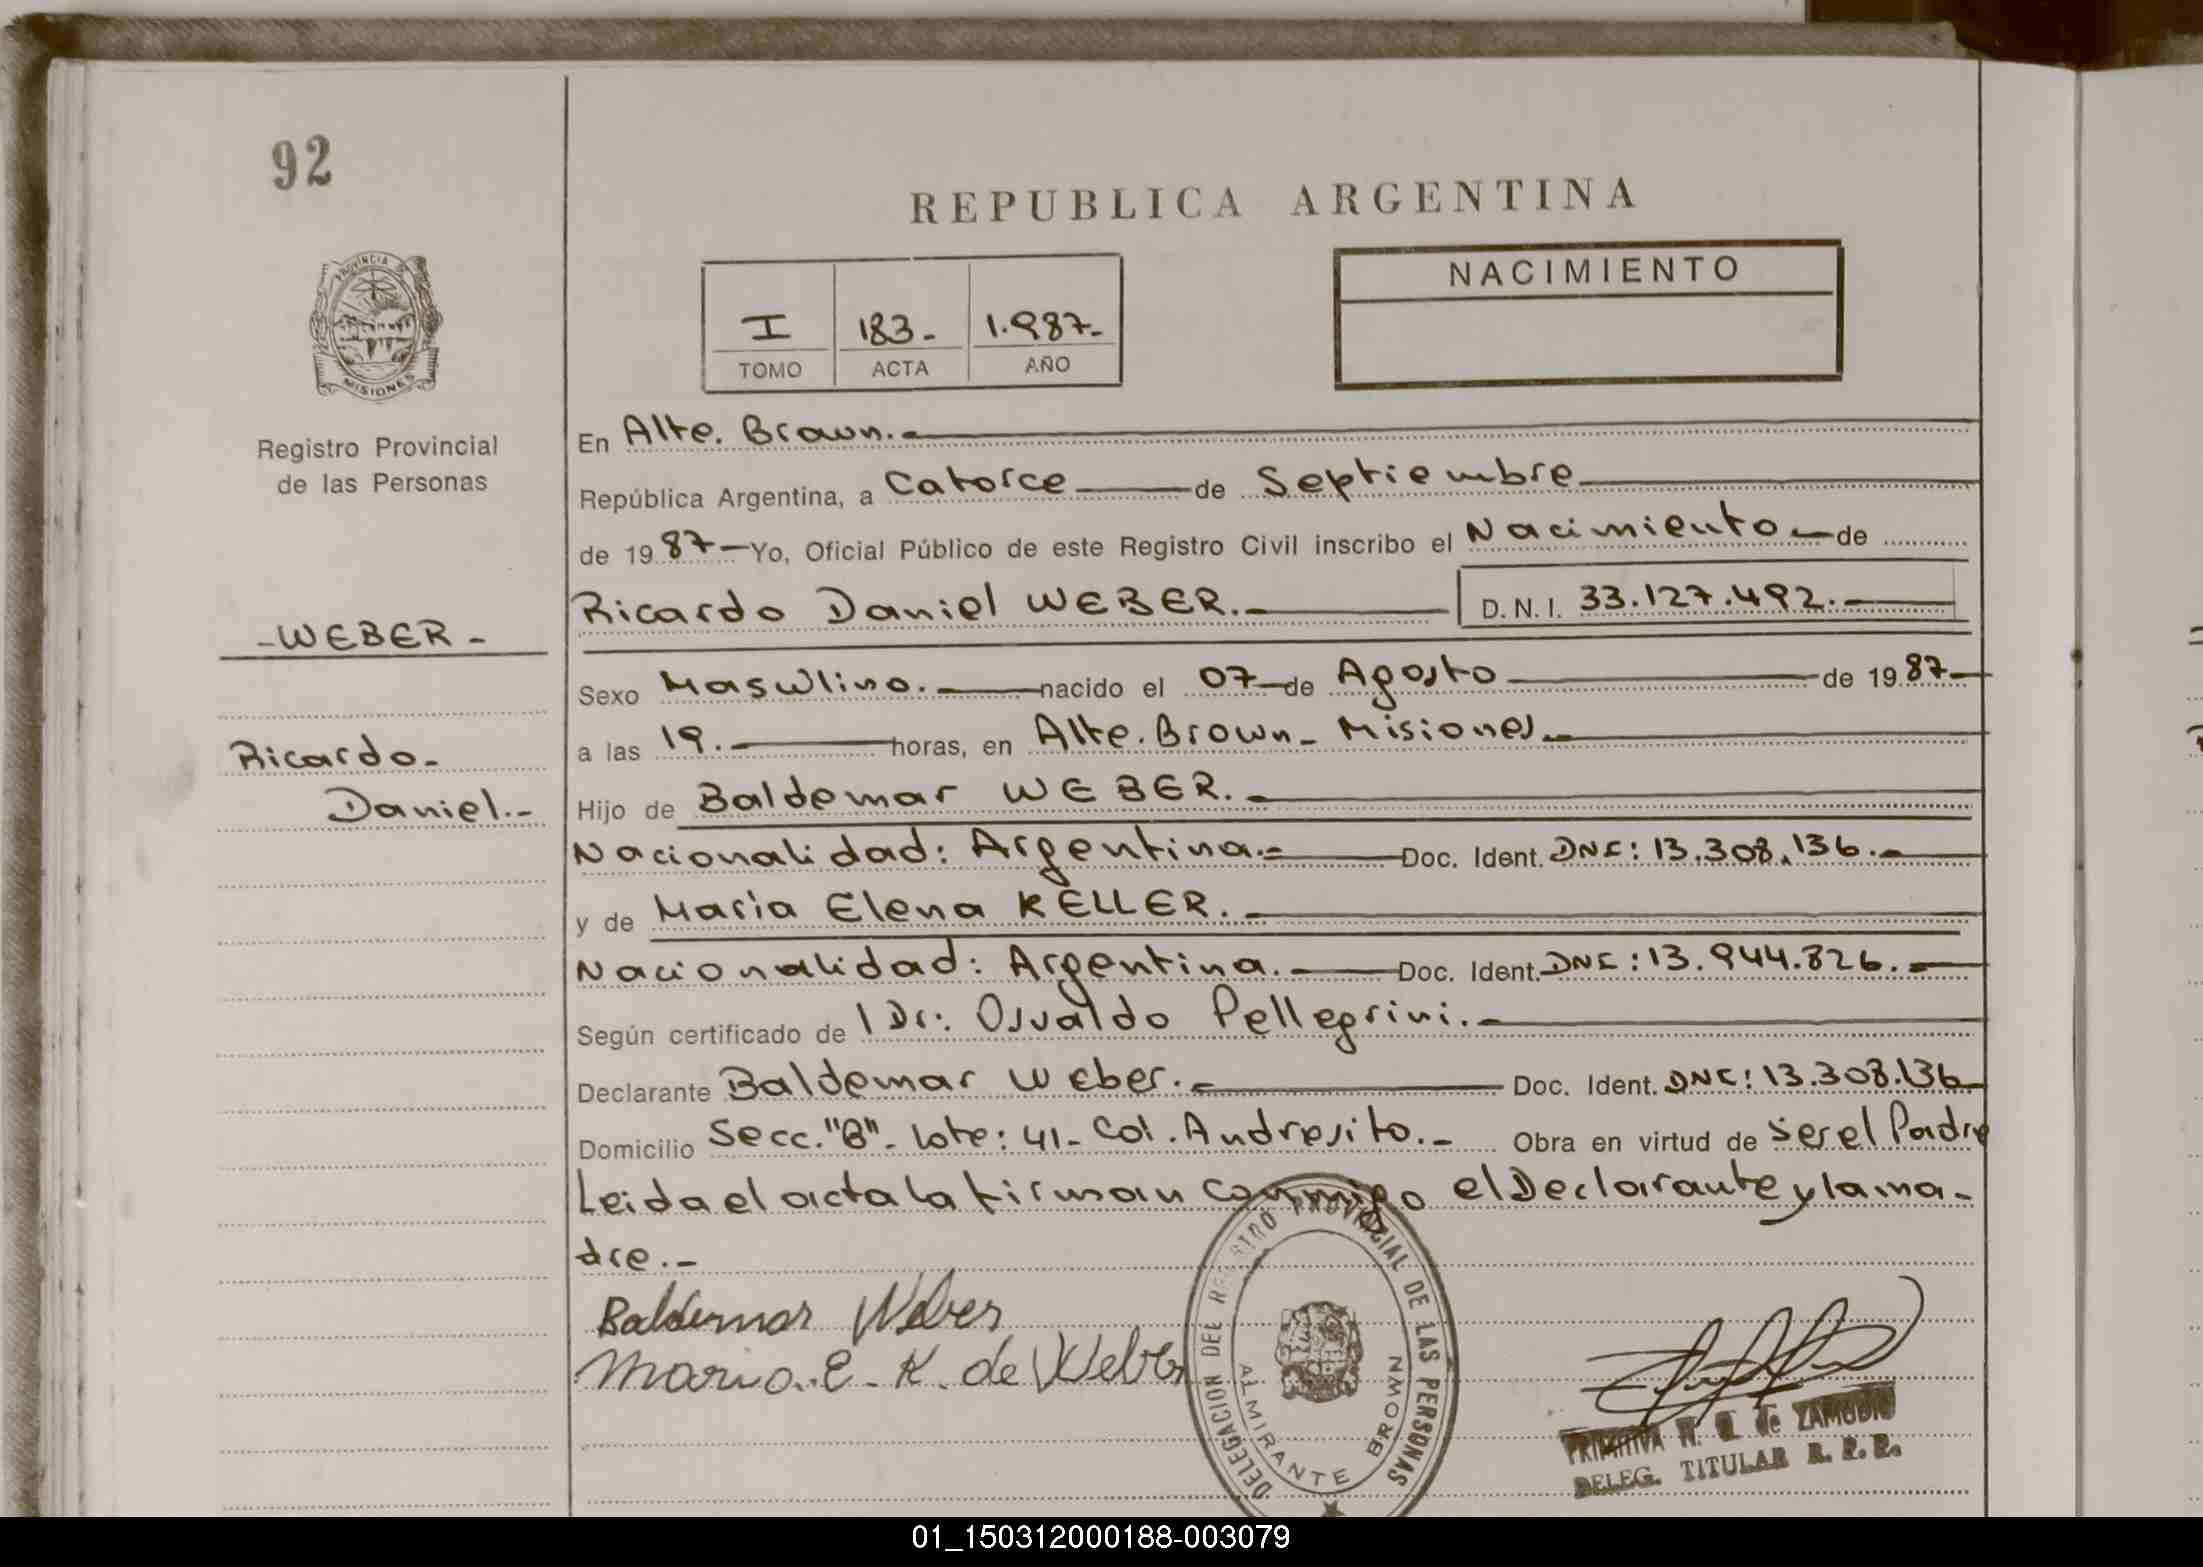 92
REPUBLICA ARGENTINA
PROVINCIA DE
MISIONES
I 183- 1.987-
TOMO ACTA AÑO
NACIMIENTO
Registro Provincial
de las Personas
-WEBER-
Ricardo-
Daniel.-
En Alte. Brown.-
República Argentina, a Catorce de Septiembre
de 1987- Yo, Oficial Público de este Registro Civil inscribo el Nacimiento de
Ricardo Daniel WEBER.- D. N. I. 33.127.492.-
Sexo Masculino.- nacido el 07 de Agosto de 1987-
a las 19.- horas, en Alte. Brown- Misiones-
Hijo de Baldemar WEBER.-
Nacionalidad: Argentina.- Doc. Ident. DNI: 13.308.136.-
y de Maria Elena KELLER.-
Nacionalidad: Argentina.- Doc. Ident. DNI: 13.944.826.-
Según certificado de l Dr: Osvaldo Pellegrini.-
Declarante Baldemar Weber.- Doc. Ident. DNI: 13.308.136
Domicilio Secc. "B"- lote: 41- Col. Andresito.- Obra en virtud de ser el Padre
Leida el acta la firman conmigo el Declarante y la ma-
dre.-
Baldemar Weber
Maria. E. K. de Weber
DELEGACION DEL REGISTRO PROVINCIAL DE LAS PERSONAS
ALMIRANTE BROWN
PRIMITIVA N. de ZAMUDIO
DELEG. TITULAR R. P. P.
01_150312000188-003079